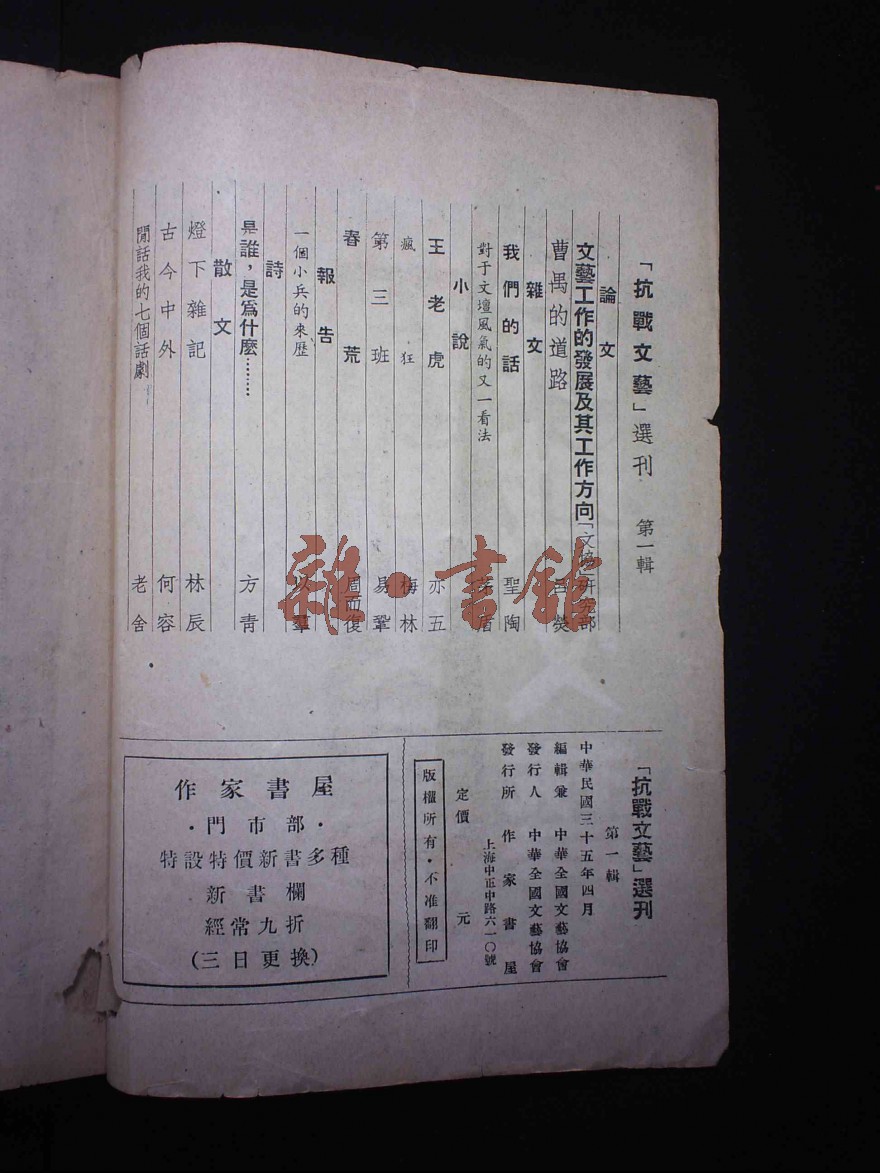 「抗戰文藝」選刊 第一輯
論文
文藝工作的發展及其工作方向 「文協」研究部
曹禺的道路 呂熒
雜文
我們的話 聖陶
對于文壇風氣的又一看法 茅盾
小說
王老虎 亦五
瘋狂 梅林
第三班 易鞏
春荒 周而復
報告
一個小兵的來歷 以羣
詩
是誰，是爲什麽……… 方青
散文
燈下雜記 林辰
古今中外 何容
閒話我的七個話劇 老舍
「抗戰文藝」選刊
第一輯
中華民國三十五年四月
編輯兼 中華全國文藝協會
發行人 中華全國文藝協會
發行所 作家書屋
上海中正中路六一〇號
定價 元
版權所有·不准翻印
作家書屋
·門市部·
特設特價新書多種
新書欄
經常九折
(三日更換)
雜·書館